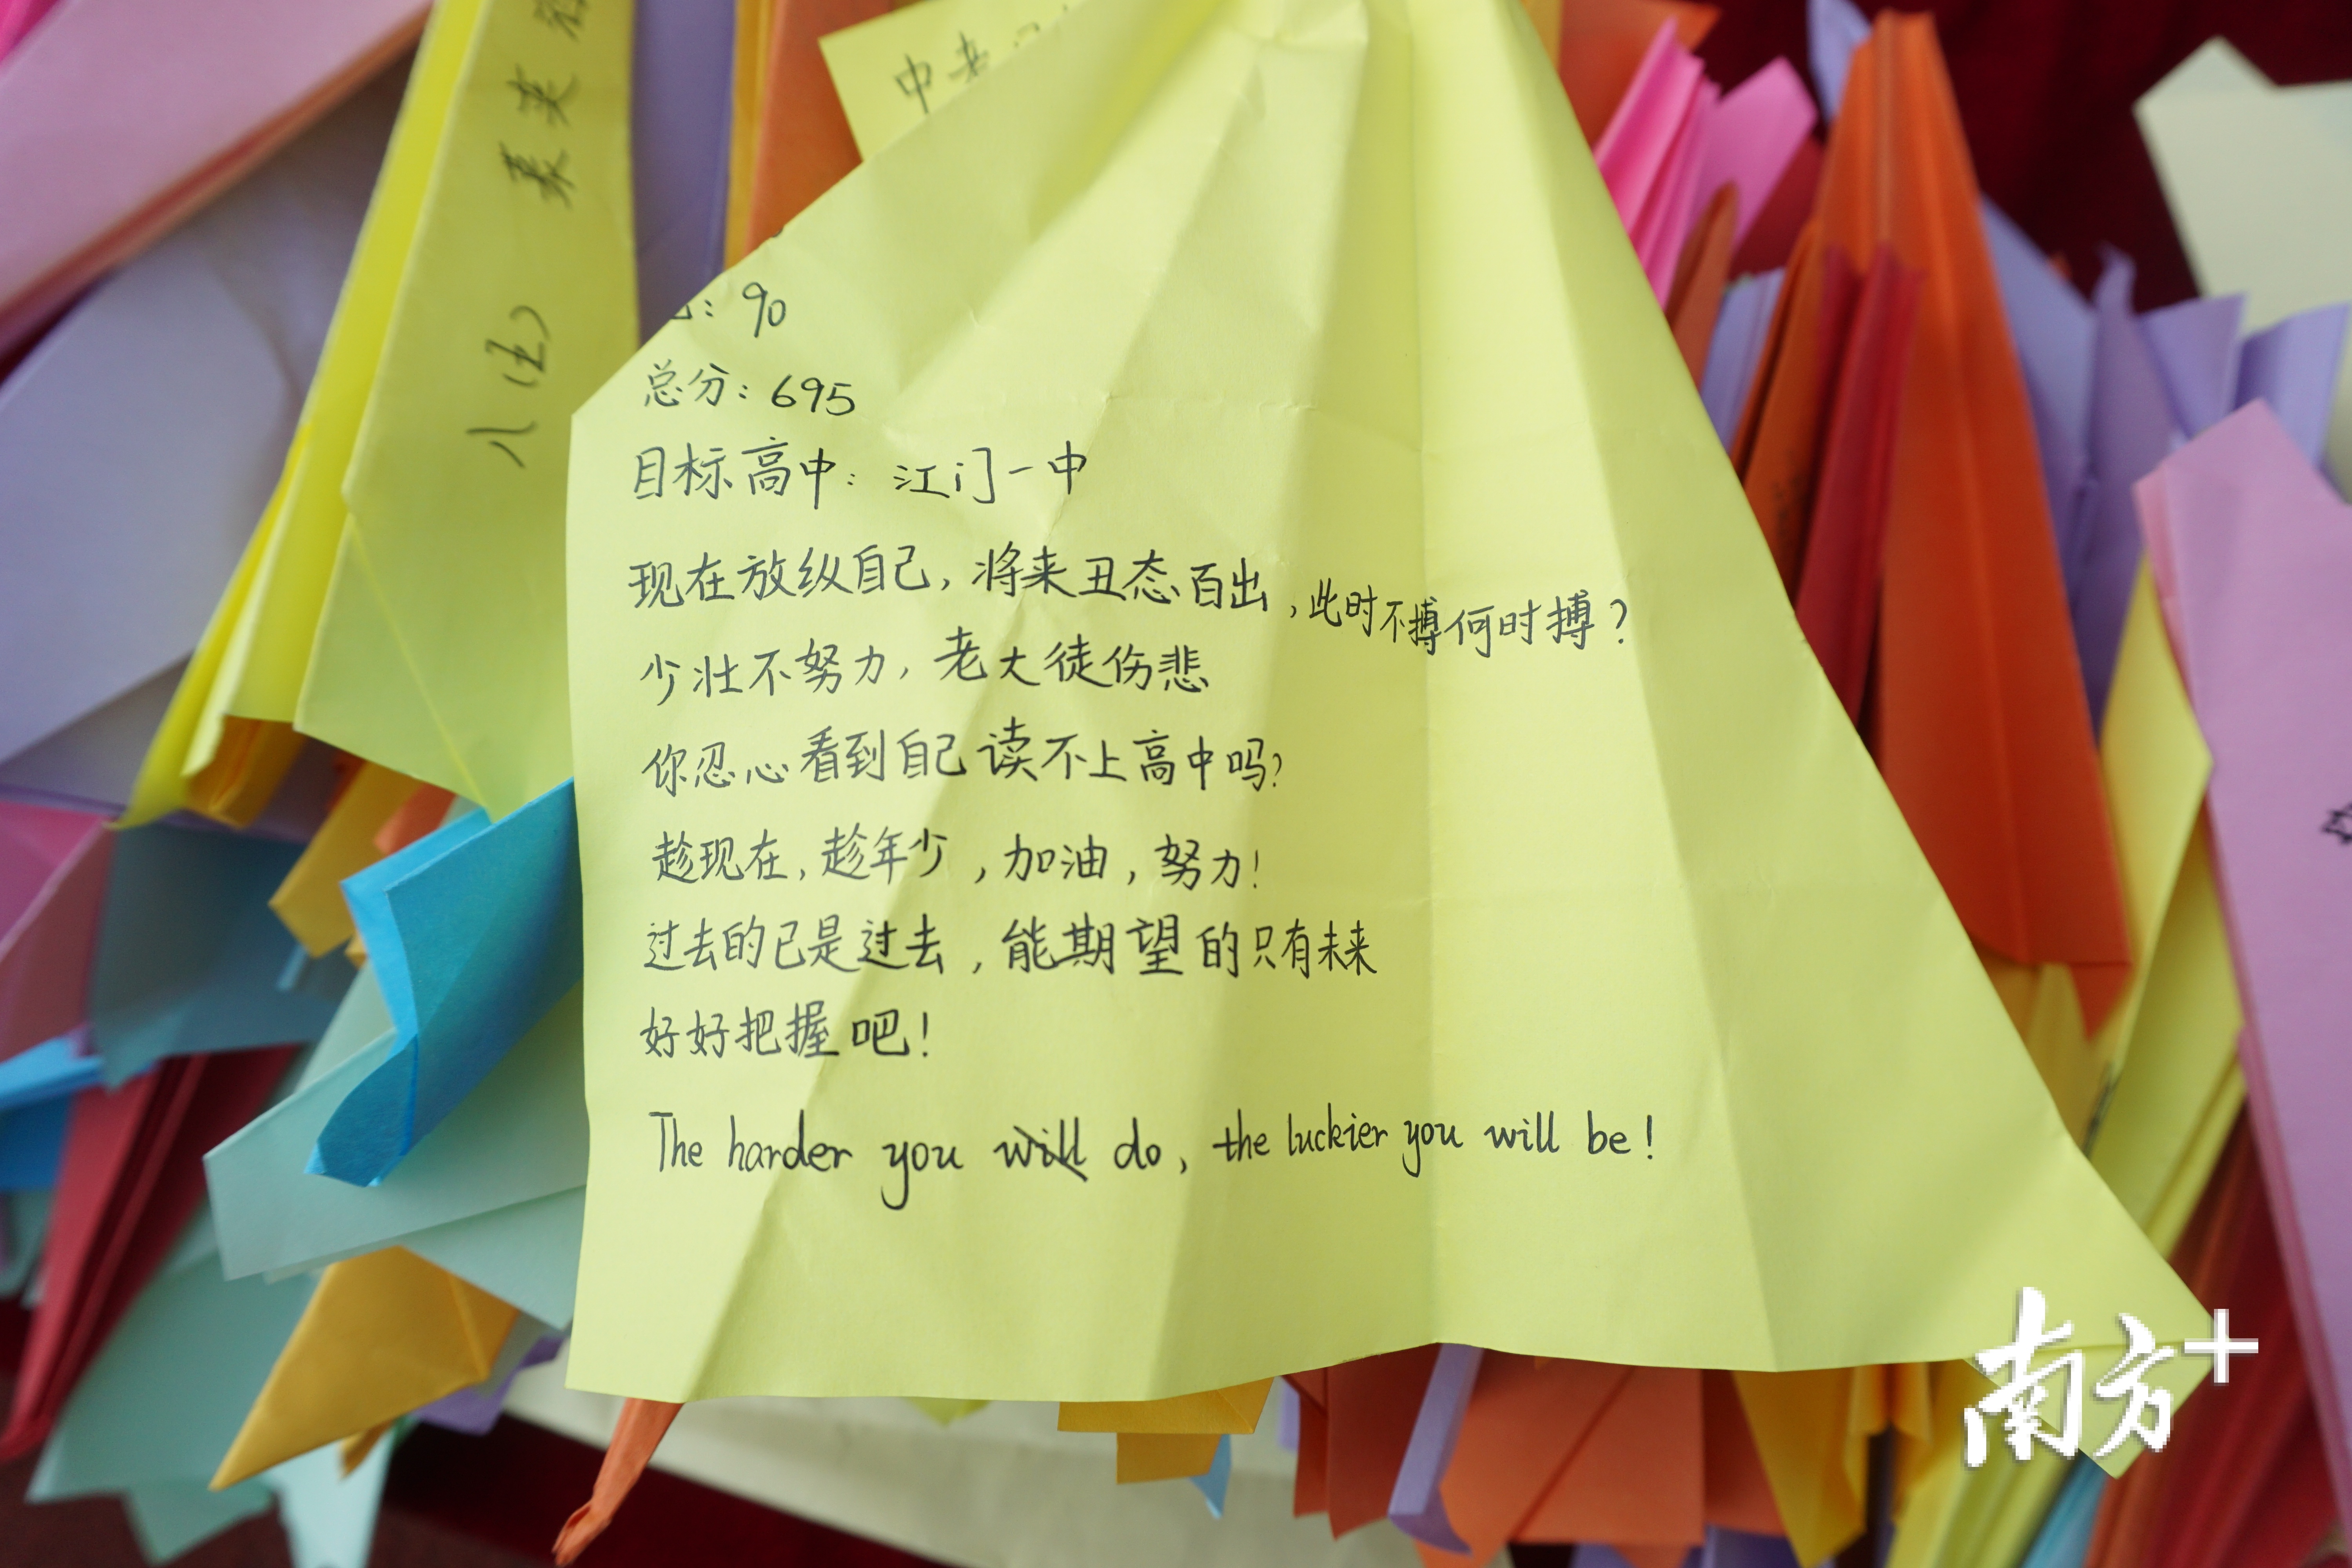 中考
八(五)
: 90
总分: 695
目标高中: 江门一中
现在放纵自己, 将来丑态百出, 此时不搏何时搏?
少壮不努力, 老大徒伤悲
你忍心看到自己读不上高中吗?
趁现在, 趁年少, 加油, 努力!
过去的已是过去, 能期望的只有未来
好好把握吧!
The harder you will do, the luckier you will be!
南方+